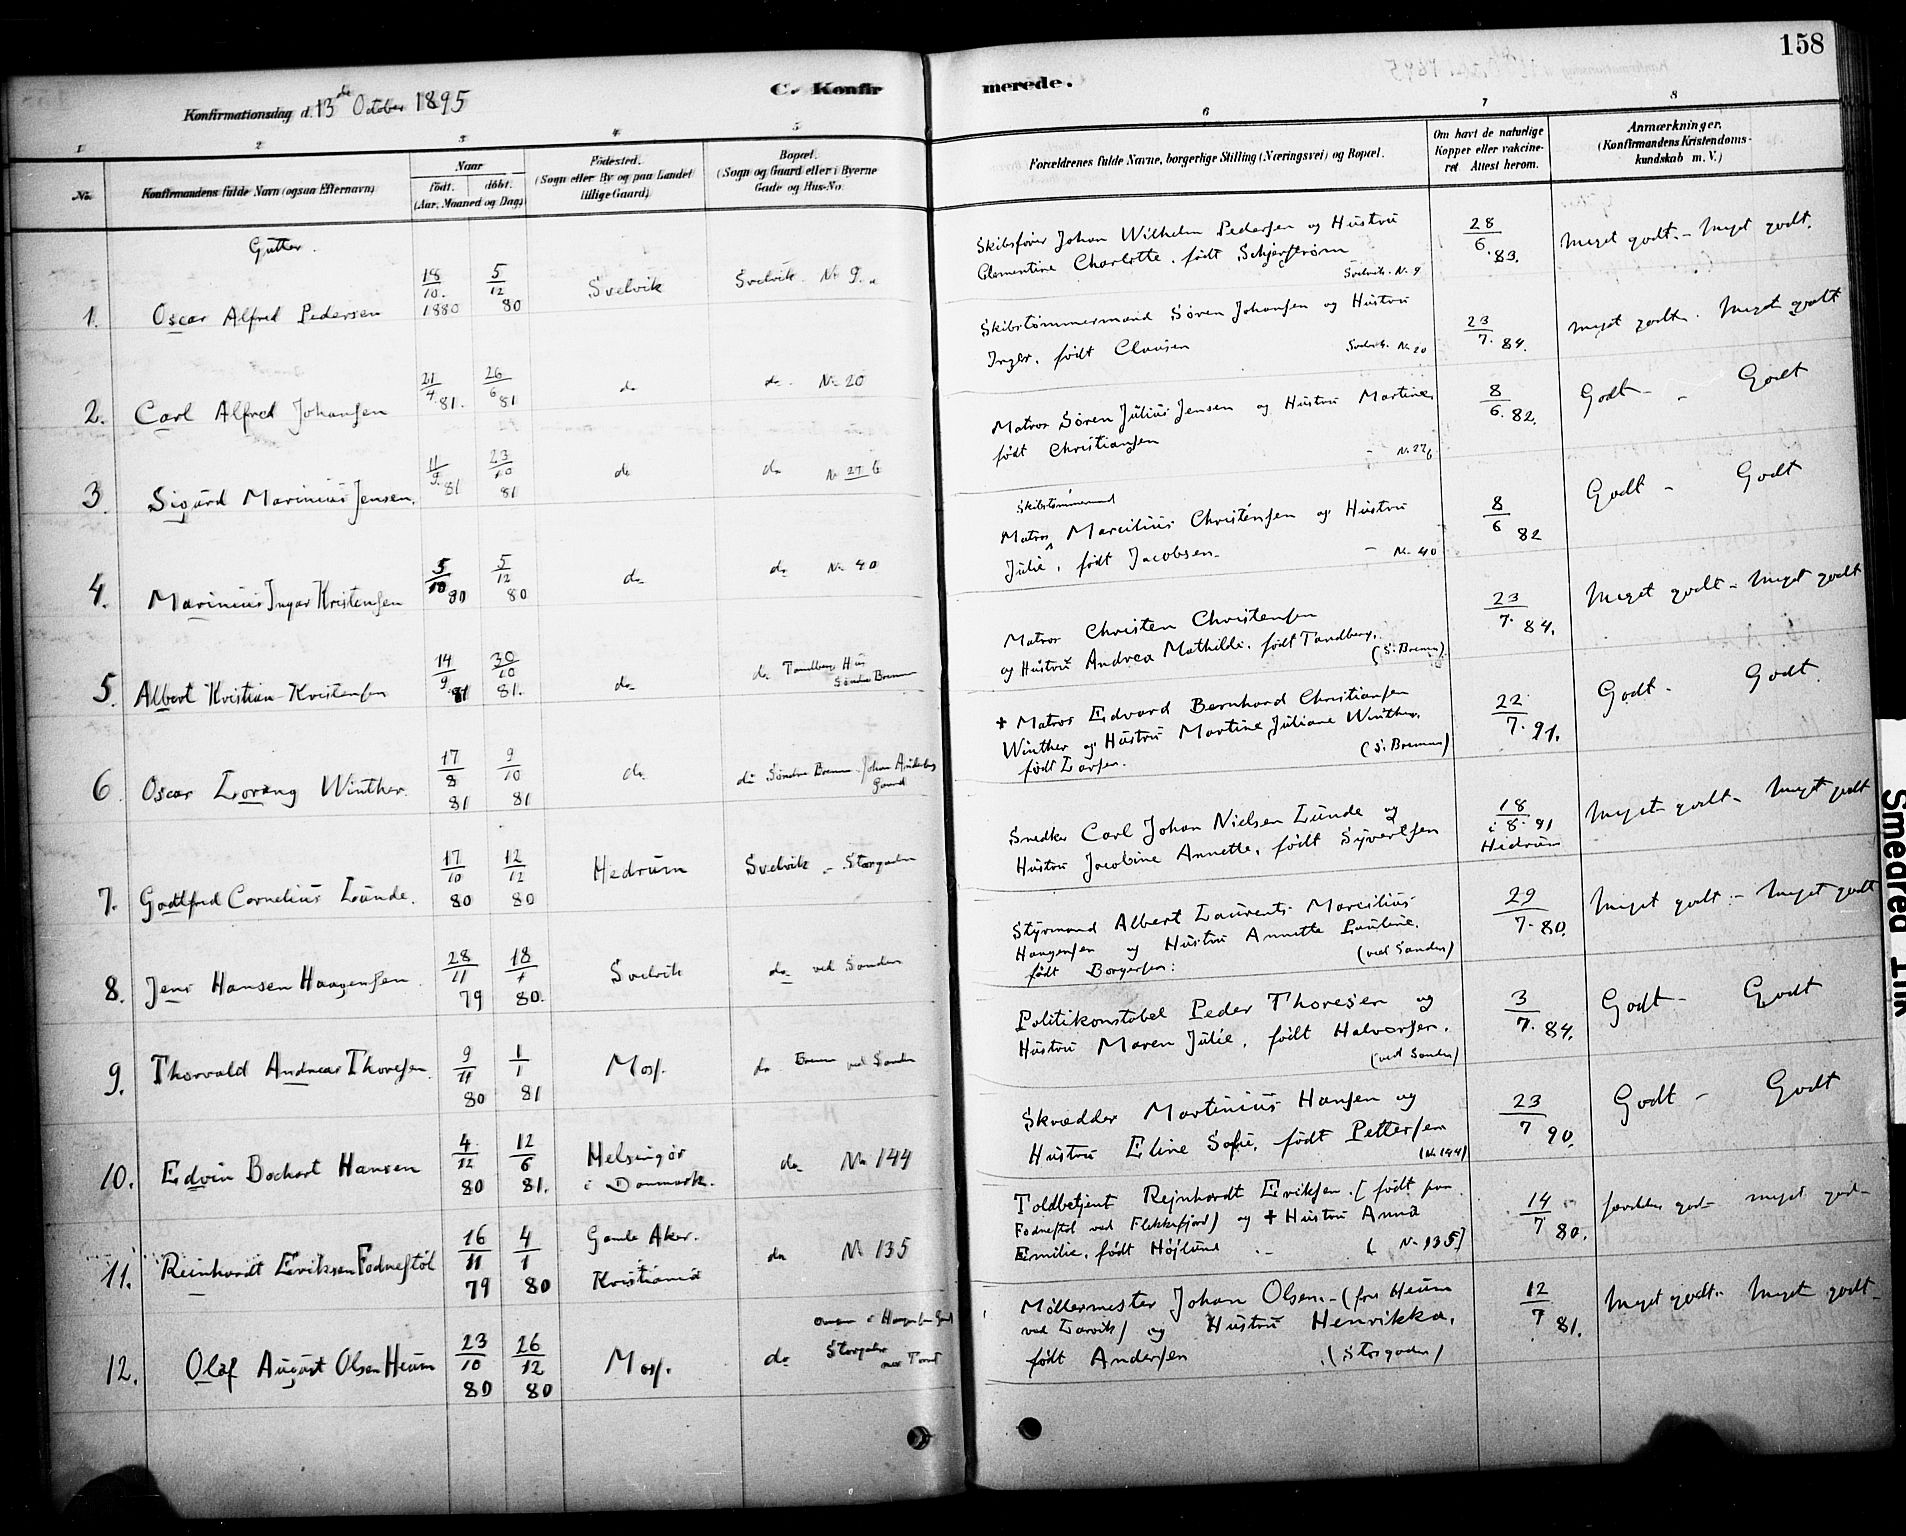 158
C. Konfir
merede.
Konfirmationsdag d. 13de October 1895
1 2 3 4 5
6 7 8
No.
Konfirmandens fulde Navn (ogsaa Efternavn)
Naar
født. döbt.
(Aar, Maaned og Dag)
Födested.
(Sogn eller By og paa Landet
tillige Gaard)
Bopæl.
(Sogn og Gaard eller i Byerne
Gade og Hus-No.
Forældrenes fulde Navne, borgerlige Stilling (Næringsvei) og Bopæl.
Om havt de naturlige
Kopper eller vakcine-
ret Attest herom.
Anmærkninger.
(Konfirmandens Kristendoms-
kundskab m. V.)
Gutter.
1. Oscar Alfred Pedersen 18/10. 1880 5/12 80 Svelvik Svelvik No 9.
Skibsfører Johan Wilhelm Pedersen og Hustru
Clementine Charlotte, født Schjerstrøm
Svelvik. No 9
28/6 83. Meget godt. - Meget godt.
2. Carl Alfred Johansen 21/4 81. 26/6 81 do do. No 20
Skibstømmermand Søren Johansen og Hustru
Inger, født Clausen Svelvik. No 20
23/7. 84. Meget godt. Meget godt
3. Sigurd Marinius Jensen. 11/9. 81 23/10 81 do do No 27 b
Matros Søren Julius Jensen og Hustru Martine
født Christiansen - No 27b
8/6. 82. Godt - Godt
4. Marinius Ingar Kristensen 5/10 80 5/12 80 do do No 40
Skibstømmermand
Matros Marcilius Christensen og Hustru
Julie, født Jacobsen - No. 40
8/6 82 Godt - Godt
5. Albert Kristian Kristensen 14/9 81 30/10 81. do do Tandberg Hus
Søndre Bremn
Matros Christen Christensen
og Hustru Andrea Mathilde, født Tandberg.
(S. Bremn)
23/7. 84. Meget godt - Meget godt
6. Oscar Lorang Winther. 17/8 81 9/10 81 do do Søndre Bremn Johan
Gaard
+ Matros Edvard Bernhard Christiansen
Winther og Hustru Martine Juliane Winther,
født Larsen. (S. Bremn)
22/7. 91. Godt - Godt.
7. Godtfred Cornelius Lunde. 17/10 80 12/12 80 Hedrum Svelvik - Storgaden
Snedker Carl Johan Nielsen Lunde og
Hustru Jacobine Annette, født Syvertsen
18/8. 91
i Hedrum
Meget godt - Meget godt
8. Jens Hansen Haagensen. 28/11 79 18/1 80. Svelvik do ved Sanden
Styrmand Albert Laurents Marcilius
Haagensen og Hustru Annette Pauline,
født Borgersen: (ved Sanden)
29/7. 80. Meget godt - Meget godt
9. Thorvald Andreas Thoresen. 9/11 80 1/1 81 Moss. do Bremn ved Sanden
Politikonstabel Peder Thoresen og
Hustru Maren Julie, født Halvorsen.
(ved Sanden)
3/7. 84. Godt - Godt
10. Edvin Bochart Hansen 4/12 80 12/6 81. Helsingør
i Danmark. do No 144
Skrædder Martinius Hansen og
Hustru Eline Sofie, født Pettersen
(No 144)
23/7 90. Godt - Godt
11. Reinhardt Eriksen Fodnestöl 16/11 79 4/1 80 Gamle Aker.
Kristiania do No 135
Toldbetjent Reinhardt Eriksen. [født paa
Fodnestöl ved Flekkefjord] og + Hustru Anna
Emilie, født Höjlund [No 135]
14/7 80. særdeles godt - meget godt
12. Olaf August Olsen Heum 23/10 80 26/12 80 Moss. do Storgaden
Møllermester Johan Olsen - (fra Heum
ved Larvik) og Hustru Henrikka,
født Andersen (Storgaden)
12/7 81. Meget godt. Meget godt -
Smedred Ink